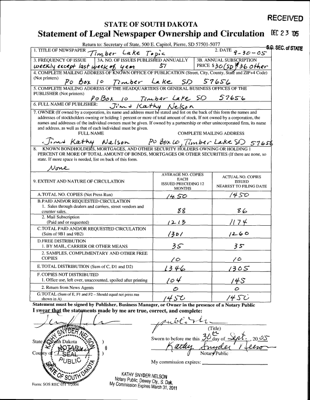 RECEIVED
STATE OF SOUTH DAKOTA
DEC 23 '05
Statement of Legal Newspaper Ownership and Circulation
S.D. SEC. of STATE
Return to: Secretary of State, 500 E. Capitol, Pierre, SD 57501-5077
1. TITLE OF NEWSPAPER Timber Lake Topic
2. DATE 9-30-05
3. FREQUENCY OF ISSUE
weekly except last week of year
3A. NO. OF ISSUES PUBLISHED ANNUALLY
51
3B. ANNUAL SUBSCRIPTION
PRICE $30 (SD) $36 other
4. COMPLETE MAILING ADDRESS OF KNOWN OFFICE OF PUBLICATION (Street, City, County, State and ZIP+4 Code)
(Not printers)
PO Box 10 Timber Lake SD 57656
5. COMPLETE MAILING ADDRESS OF THE HEADQUARTERS OR GENERAL BUSINESS OFFICES OF THE
PUBLISHER (Not printers)
PO Box 10 Timber Lake SD 57656
6. FULL NAME OF PUBLISHER:
Jim & Kathy Nelson
7. OWNER (If owned by a corporation, its name and address must be stated and
FULL NAME
COMPLETE MAILING ADDRESS
Jim & Kathy Nelson
PO Box 10, Timber Lake SD 57656
8. KNOWN BONDHOLDERS, MORTGAGES, AND OTHER SECURITY HOLDERS OWNING OR HOLDING 1
PERCENT OR MORE OF TOTAL AMOUNT OF BONDS, MORTGAGES OR OTHER SECURITIES (If there are none, so
state. If more space is needed, list on back of this form.
None
9. EXTENT AND NATURE OF CIRCULATION
AVERAGE NO. COPIES
EACH
ISSUED PRECEDING 12
MONTHS
ACTUAL NO. COPIES
ISSUED
NEAREST TO FILING DATE
A. TOTAL NO. COPIES (Net Press Run)
1450
1450
B. PAID AND/OR REQUESTED CIRCULATION
1. Sales through dealers and carriers, street vendors and
counter sales.
88
86
2. Mail Subscription
(Paid and or requested)
1213
1174
C. TOTAL PAID AND/OR REQUESTED CIRCULATION
(Sum of 9B1 and 9B2)
1301
1260
D. FREE DISTRIBUTION
1. BY MAIL, CARRIER OR OTHER MEANS
35
35
2. SAMPLES, COMPLIMENTARY AND OTHER FREE
COPIES
10
10
E. TOTAL DISTRIBUTION (Sum of C, D1 and D2)
1346
1305
F. COPIES NOT DISTRIBUTED
1. Office use, left over, unaccounted, spoiled after printing
104
145
2. Return from News Agents
0
0
G. TOTAL (Sum of E, F1 and F2 - Should equal net press run
shown in A)
1450
1450
Statement must be signed by Publisher, Business Manager, or Owner in the presence of a Notary Public
I swear that the statements made by me are true, correct, and complete:
publisher
(Title)
State of South Dakota
County of
Sworn to before me this 30th day of Sept., 2005
Kathy Snyder Nelson
Notary Public
My commission expires:
KATHY SNYDER NELSON
NOTARY
SEAL
PUBLIC
SOUTH DAKOTA
KATHY SNYDER NELSON
Notary Public, Dewey Cty., S. Dak.
My Commission Expires March 31, 2011